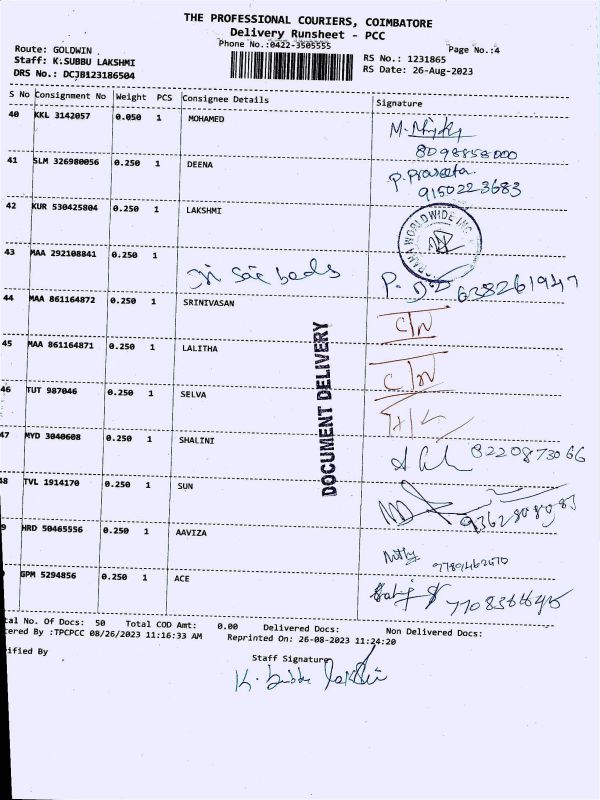 THE PROFESSIONAL COURIERS, COIMBATORE
Delivery Runsheet - PCC
Phone No.:0422-3505555
Page No.:4
Route: GOLDWIN
Staff: K.SUBBU LAKSHMI
DRS No.: DCJB123186504
RS No.: 1231865
RS Date: 26-Aug-2023
S No Consignment No Weight PCS Consignee Details Signature
40 KKL 3142057 0.050 1 MOHAMED
8098858000
41 SLM 326980056 0.250 1 DEENA
9150223683
42 KUR 530425804 0.250 1 LAKSHMI
WORLDWIDE INC
43 MAA 292108841 0.250 1
638261947
44 MAA 861164872 0.250 1 SRINIVASAN
C/N
45 MAA 861164871 0.250 1 LALITHA
C/N
46 TUT 987046 0.250 1 SELVA
DOCUMENT DELIVERY
47 MYD 3040608 0.250 1 SHALINI
8220873066
48 TVL 1914170 0.250 1 SUN
9 HRD 50465556 0.250 1 AAVIZA
GPM 5294856 0.250 1 ACE
tal No. Of Docs: 50 Total COD Amt: 0.00 Delivered Docs: Non Delivered Docs:
tered By :TPCPCC 08/26/2023 11:16:33 AM Reprinted On: 26-08-2023 11:24:20
rified By
Staff Signature
K. Subbu Lakshmi